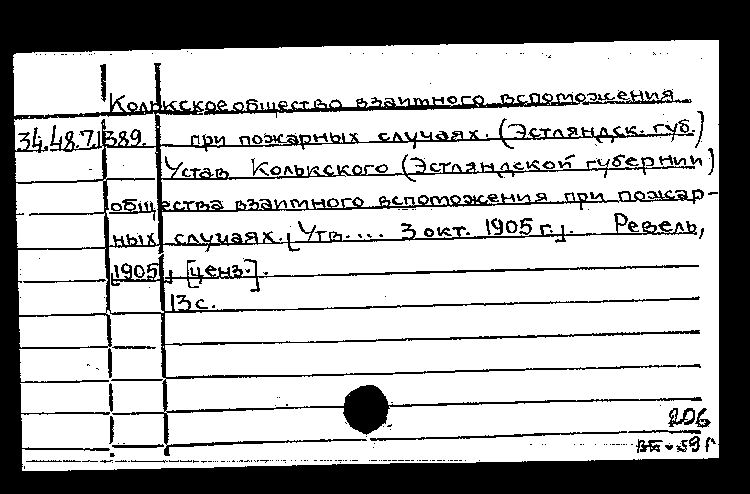 Колькское общество взаимного вспоможения
34.48.7.1389. при пожарных случаях. (Эстляндск. губ.)
Устав Колькского (Эстляндской губернии)
общества взаимного вспоможения при пожар-
ных случаях. [Утв.... 3 окт. 1905 г.]. Ревель,
[1905], [ценз.].
13 с.
206
ВБ-59 г